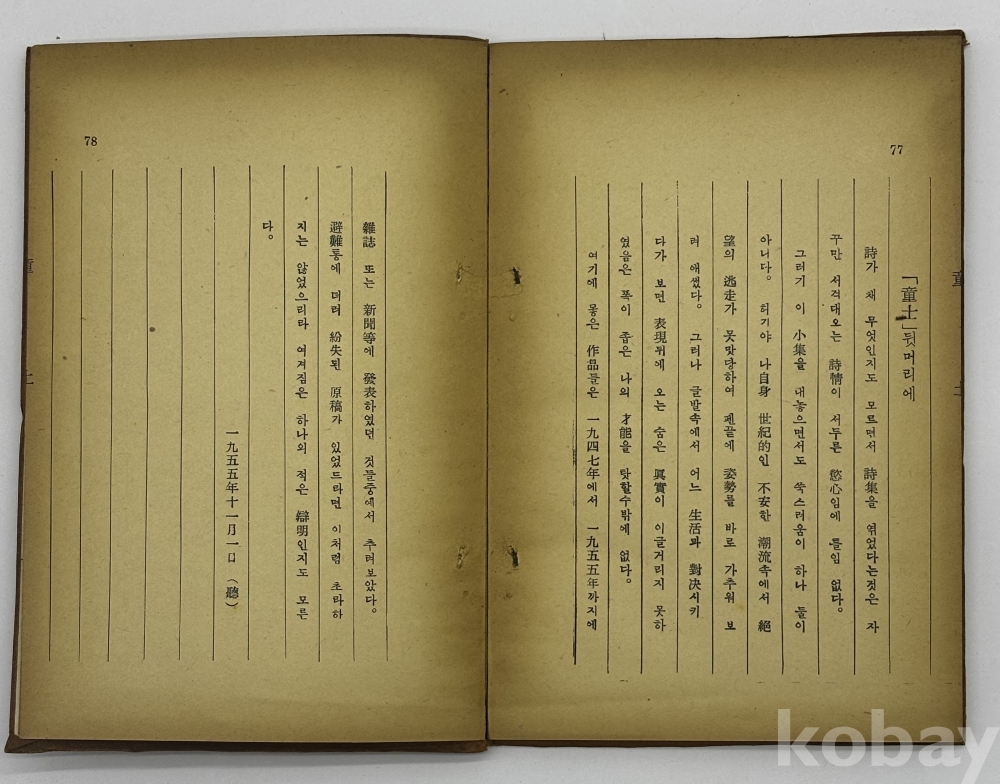 77
「童土」뒷머리에
詩가 채 무엇인지도 모르면서 詩集을 엮었다는것은 자
꾸만 서걱대오는 詩情이 서두른 慾心임에 틀임 없다.
그러기 이 小集을 내놓으면서도 쑥스러움이 하나 둘이
아니다. 허기야 나自身 世紀的인 不安한 潮流속에서 絕
望의 逃走가 못맞당하여 펜끝에 姿勢를 바로 가추워 보
려 애썼다. 그러나 글발속에서 어느 生活과 對决시키
다가 보면 表現뒤에 오는 숨은 眞實이 이글거리지 못하
였음은 폭이 좁은 나의 才能을 탓할수밖에 없다.
여기에 몽은 作品들은 一九四七年에서 一九五五年까지에
78
雜誌 또는 新聞等에 發表하였던 것들중에서 추려보았다.
避難통에 더러 紛失된 原稿가 있었드라면 이처럼 초라하
지는 않었으리라 여겨짐은 하나의 적은 辯明인지도 모른
다。
一九五五年十一月一日 (聽)
童 土
kobay